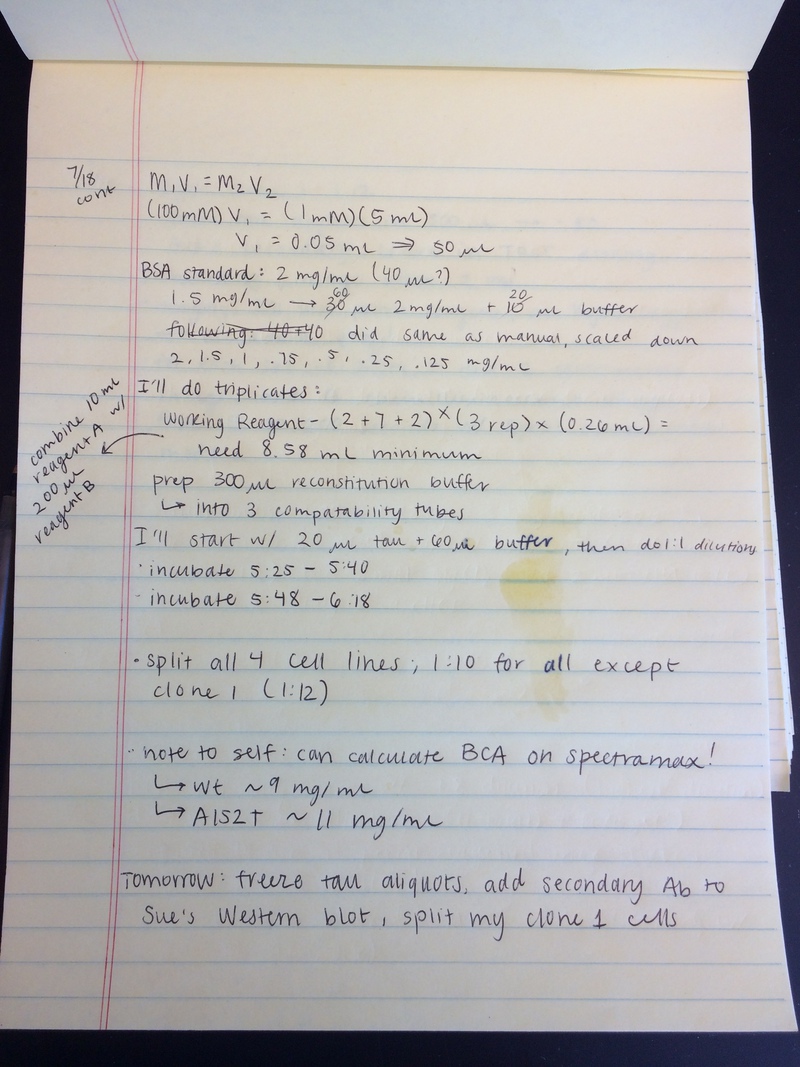 7/18
cont
M1V1 = M2V2
(100mM) V1 = (1mM)(5mL)
V1 = 0.05 mL ⇒ 50 µL
BSA standard: 2 mg/mL (40 µL?)
60 20
1.5 mg/mL → 30 µL 2mg/mL + 10 µL buffer
following: 40+40 did same as manual, scaled down
2, 1.5, 1, .75, .5, .25, .125 mg/mL
I'll do triplicates:
Working Reagent - (2+7+2) × (3 rep) × (0.26mL) =
need 8.58 mL minimum
combine 10mL
reagent A w/
200 µL
reagent B
prep 300µL reconstitution buffer
↳ into 3 compatability tubes
I'll start w/ 20 µL tau + 60µL buffer, then do 1:1 dilutions
· incubate 5:25 - 5:40
- incubate 5:48 - 6:18
• split all 4 cell lines; 1:10 for all except
clone 1 (1:12)
·· note to self: can calculate BCA on spectramax!
↳ Wt ~9 mg/mL
↳ A152T ~11 mg/mL
Tomorrow: freeze tau aliquots, add secondary Ab to
Sue's Western blot, split my clone 1 cells